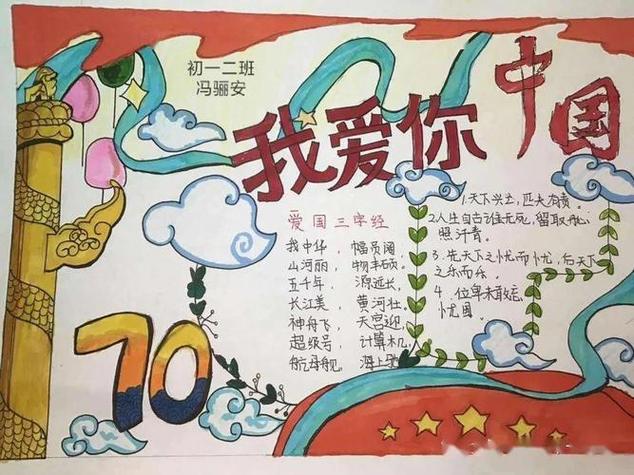 初一二班
冯骊安
我爱你
中国
爱国三字经
我中华，幅员阔，
山河丽，物丰硕。
五千年，源远长，
长江美，黄河壮，
神舟飞，天宫迎，
超级号，计算机，
航母舰，海上
1.天下兴亡，匹夫有责。
2.人生自古谁无死，留取丹心
照汗青。
3.先天下之忧而忧，后天下
之乐而乐。
4.位卑未敢忘
忧国
70